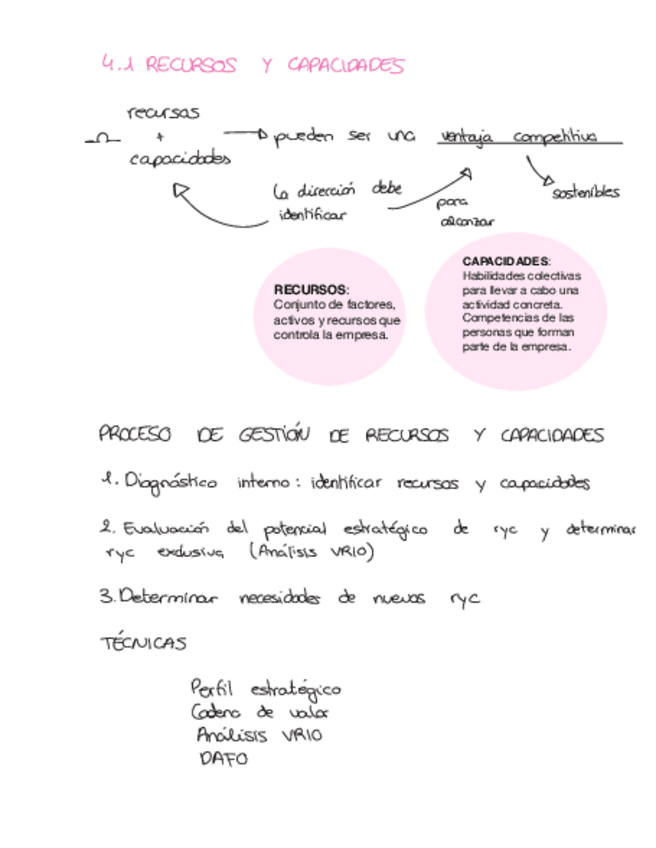 4.1 RECURSOS Y CAPACIDADES
recursos
+
capacidades
pueden ser una ventaja competitiva
sostenibles
la dirección debe
identificar
para
alcanzar
RECURSOS:
Conjunto de factores,
activos y recursos que
controla la empresa.
CAPACIDADES:
Habilidades colectivas
para llevar a cabo una
actividad concreta.
Competencias de las
personas que forman
parte de la empresa.
PROCESO DE GESTIÓN DE RECURSOS Y CAPACIDADES
1. Diagnóstico interno: identificar recursos y capacidades
2. Evaluación del potencial estratégico de ryc y determinar
ryc exclusiva (Análisis VRIO)
3. Determinar necesidades de nuevos ryc
TÉCNICAS
Perfil estratégico
Cadena de valor
Análisis VRIO
DAFO